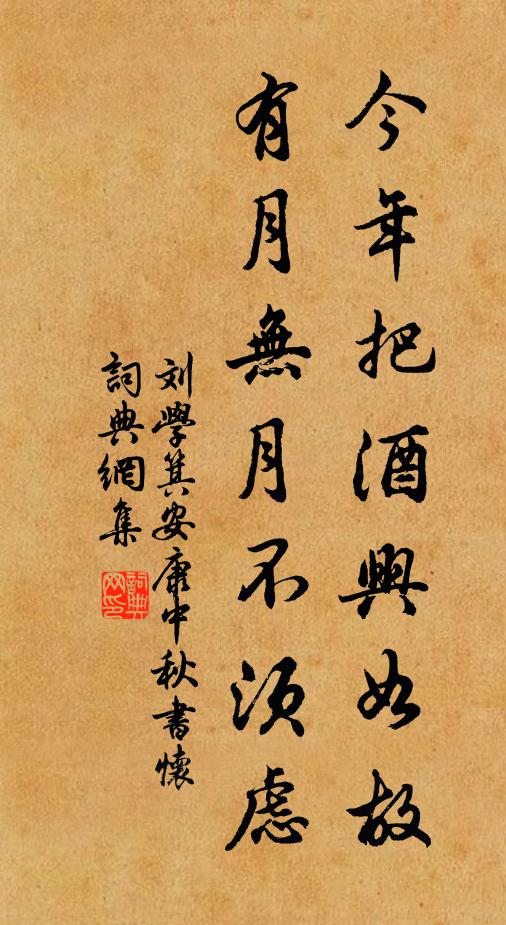 今年把酒興如故
有月無月不須慮
刘學箕安康中秋書懷
詞典網集
詞典网印